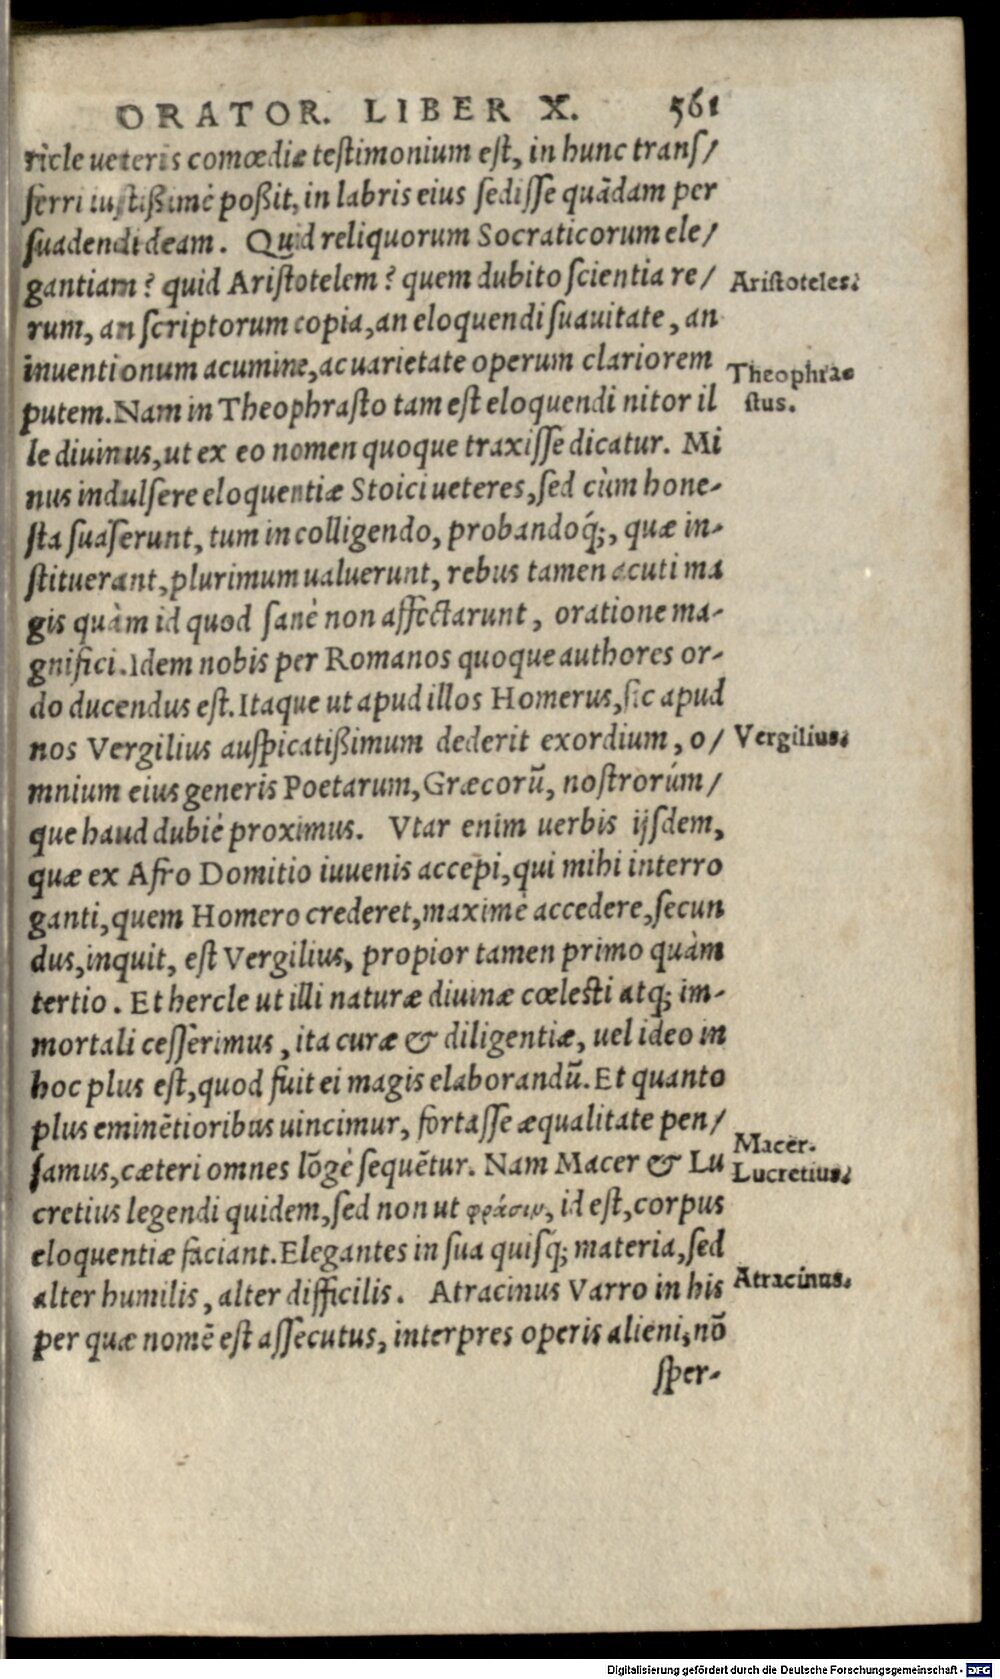 ORATOR. LIBER X. 561
ricle ueteris comœdiæ testimonium est, in hunc transs/
ferri iustißimè poßit, in labris eius sedisse quãdam per
suadendi deam. Quid reliquorum Socraticorum ele/
gantiam? quid Aristotelem? quem dubito scientia re/
Aristoteles.
rum, an scriptorum copia, an eloquendi suauitate, an
inuentionum acumine, ac uarietate operum clariorem
Theophra-
putem. Nam in Theophrasto tam est eloquendi nitor il
stus.
le diuinus, ut ex eo nomen quoque traxisse dicatur. Mi
nus indulsere eloquentiæ Stoici ueteres, sed cùm hone-
sta suaserunt, tum in colligendo, probandoq́;, quæ in-
stituerant, plurimum ualuerunt, rebus tamen acuti ma
gis quàm id quod sanè non affectarunt, oratione ma-
gnifici. Idem nobis per Romanos quoque authores or-
do ducendus est. Itaque ut apud illos Homerus, sic apud
nos Vergilius auspicatißimum dederit exordium, o/
Vergilius.
mnium eius generis Poetarum, Græcorũ, nostrorúm/
que haud dubiè proximus. Vtar enim uerbis ijsdem,
quæ ex Afro Domitio iuuenis accepi, qui mihi interro
ganti, quem Homero crederet, maximè accedere, secun
dus, inquit, est Vergilius, propior tamen primo quàm
tertio. Et hercle ut illi naturæ diuinæ cœlesti atq; im-
mortali cesserimus, ita curæ & diligentiæ, uel ideo in
hoc plus est, quod fuit ei magis elaborandũ. Et quanto
plus eminẽtioribus uincimur, fortasse æqualitate pen/
Macer.
samus, cæteri omnes lõgè sequẽtur. Nam Macer & Lu
Lucretius.
cretius legendi quidem, sed non ut φράσιν, id est, corpus
eloquentiæ faciant. Elegantes in sua quisq; materia, sed
alter humilis, alter difficilis. Atracinus Varro in his
Atracinus.
per quæ nomẽ est assecutus, interpres operis alieni, nõ
sper-
Digitalisierung gefördert durch die Deutsche Forschungsgemeinschaft - DFG